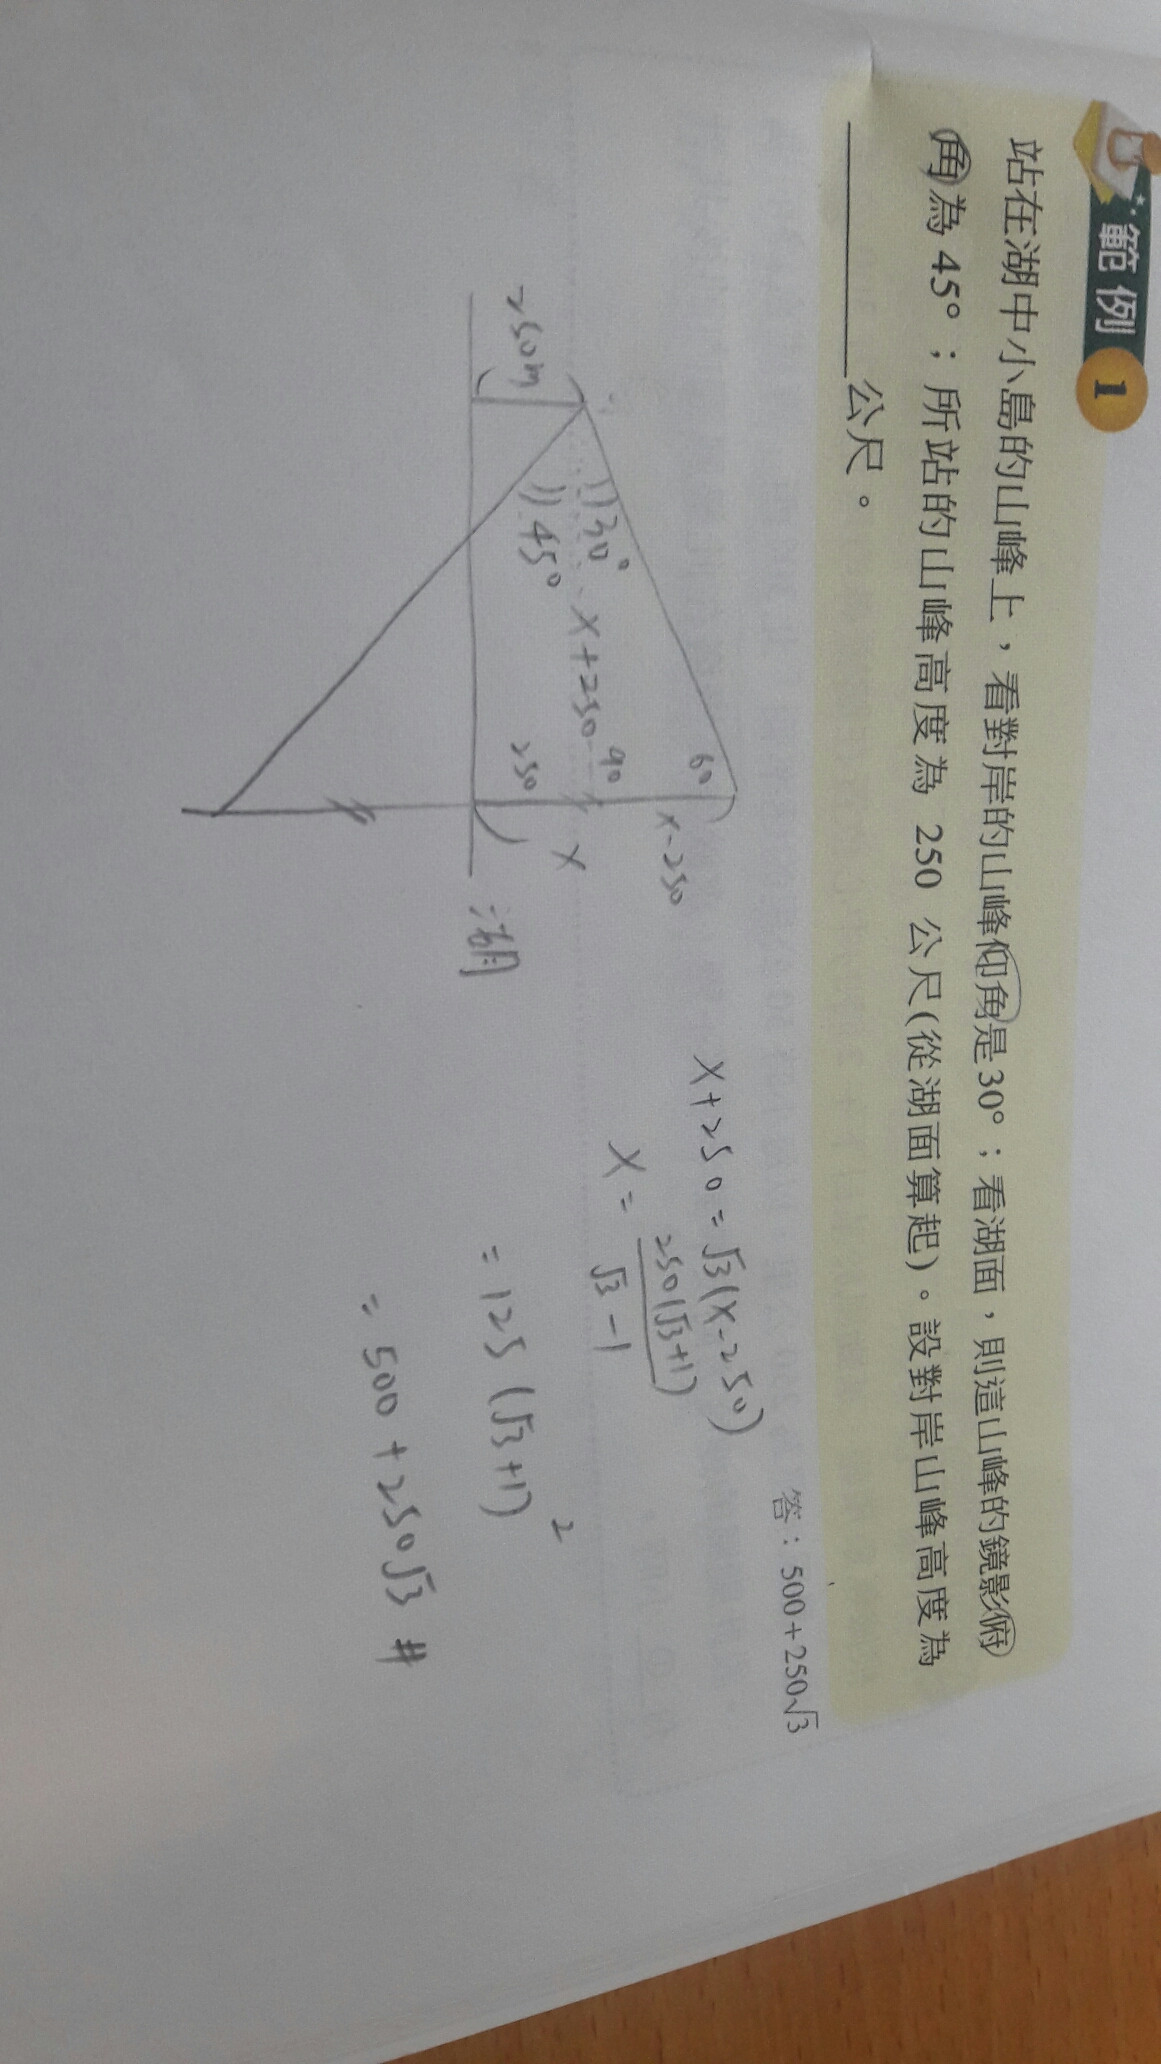 範例 1
站在湖中小島的山峰上，看對岸的山峰仰角是30°；看湖面，則這山峰的鏡影俯
角為 45°；所站的山峰高度為 250 公尺(從湖面算起)。設對岸山峰高度為
公尺。
答：500+250√3
250m
30°
45°
x+250
60
90
250
x-250
x
湖
x+250=√3(x-250)
x = 250(√3+1) / √3-1
= 125(√3+1)²
= 500+250√3 #